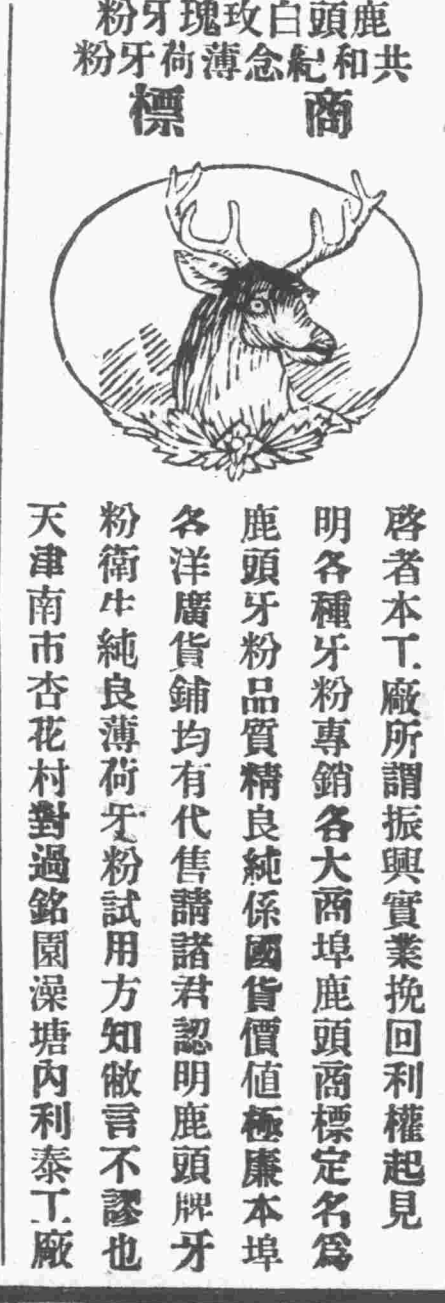 鹿頭白玫瑰牙粉
共和紀念薄荷牙粉
商標
啓者本工廠所謂振興實業挽回利權起見
明各種牙粉專銷各大商埠鹿頭商標定名爲
鹿頭牙粉品質精良純係國貨價値極廉本埠
各洋廣貨鋪均有代售請諸君認明鹿頭牌牙
粉衛生純良薄荷牙粉試用方知敝言不謬也
天津南市杏花村對過銘園澡塘內利泰工廠